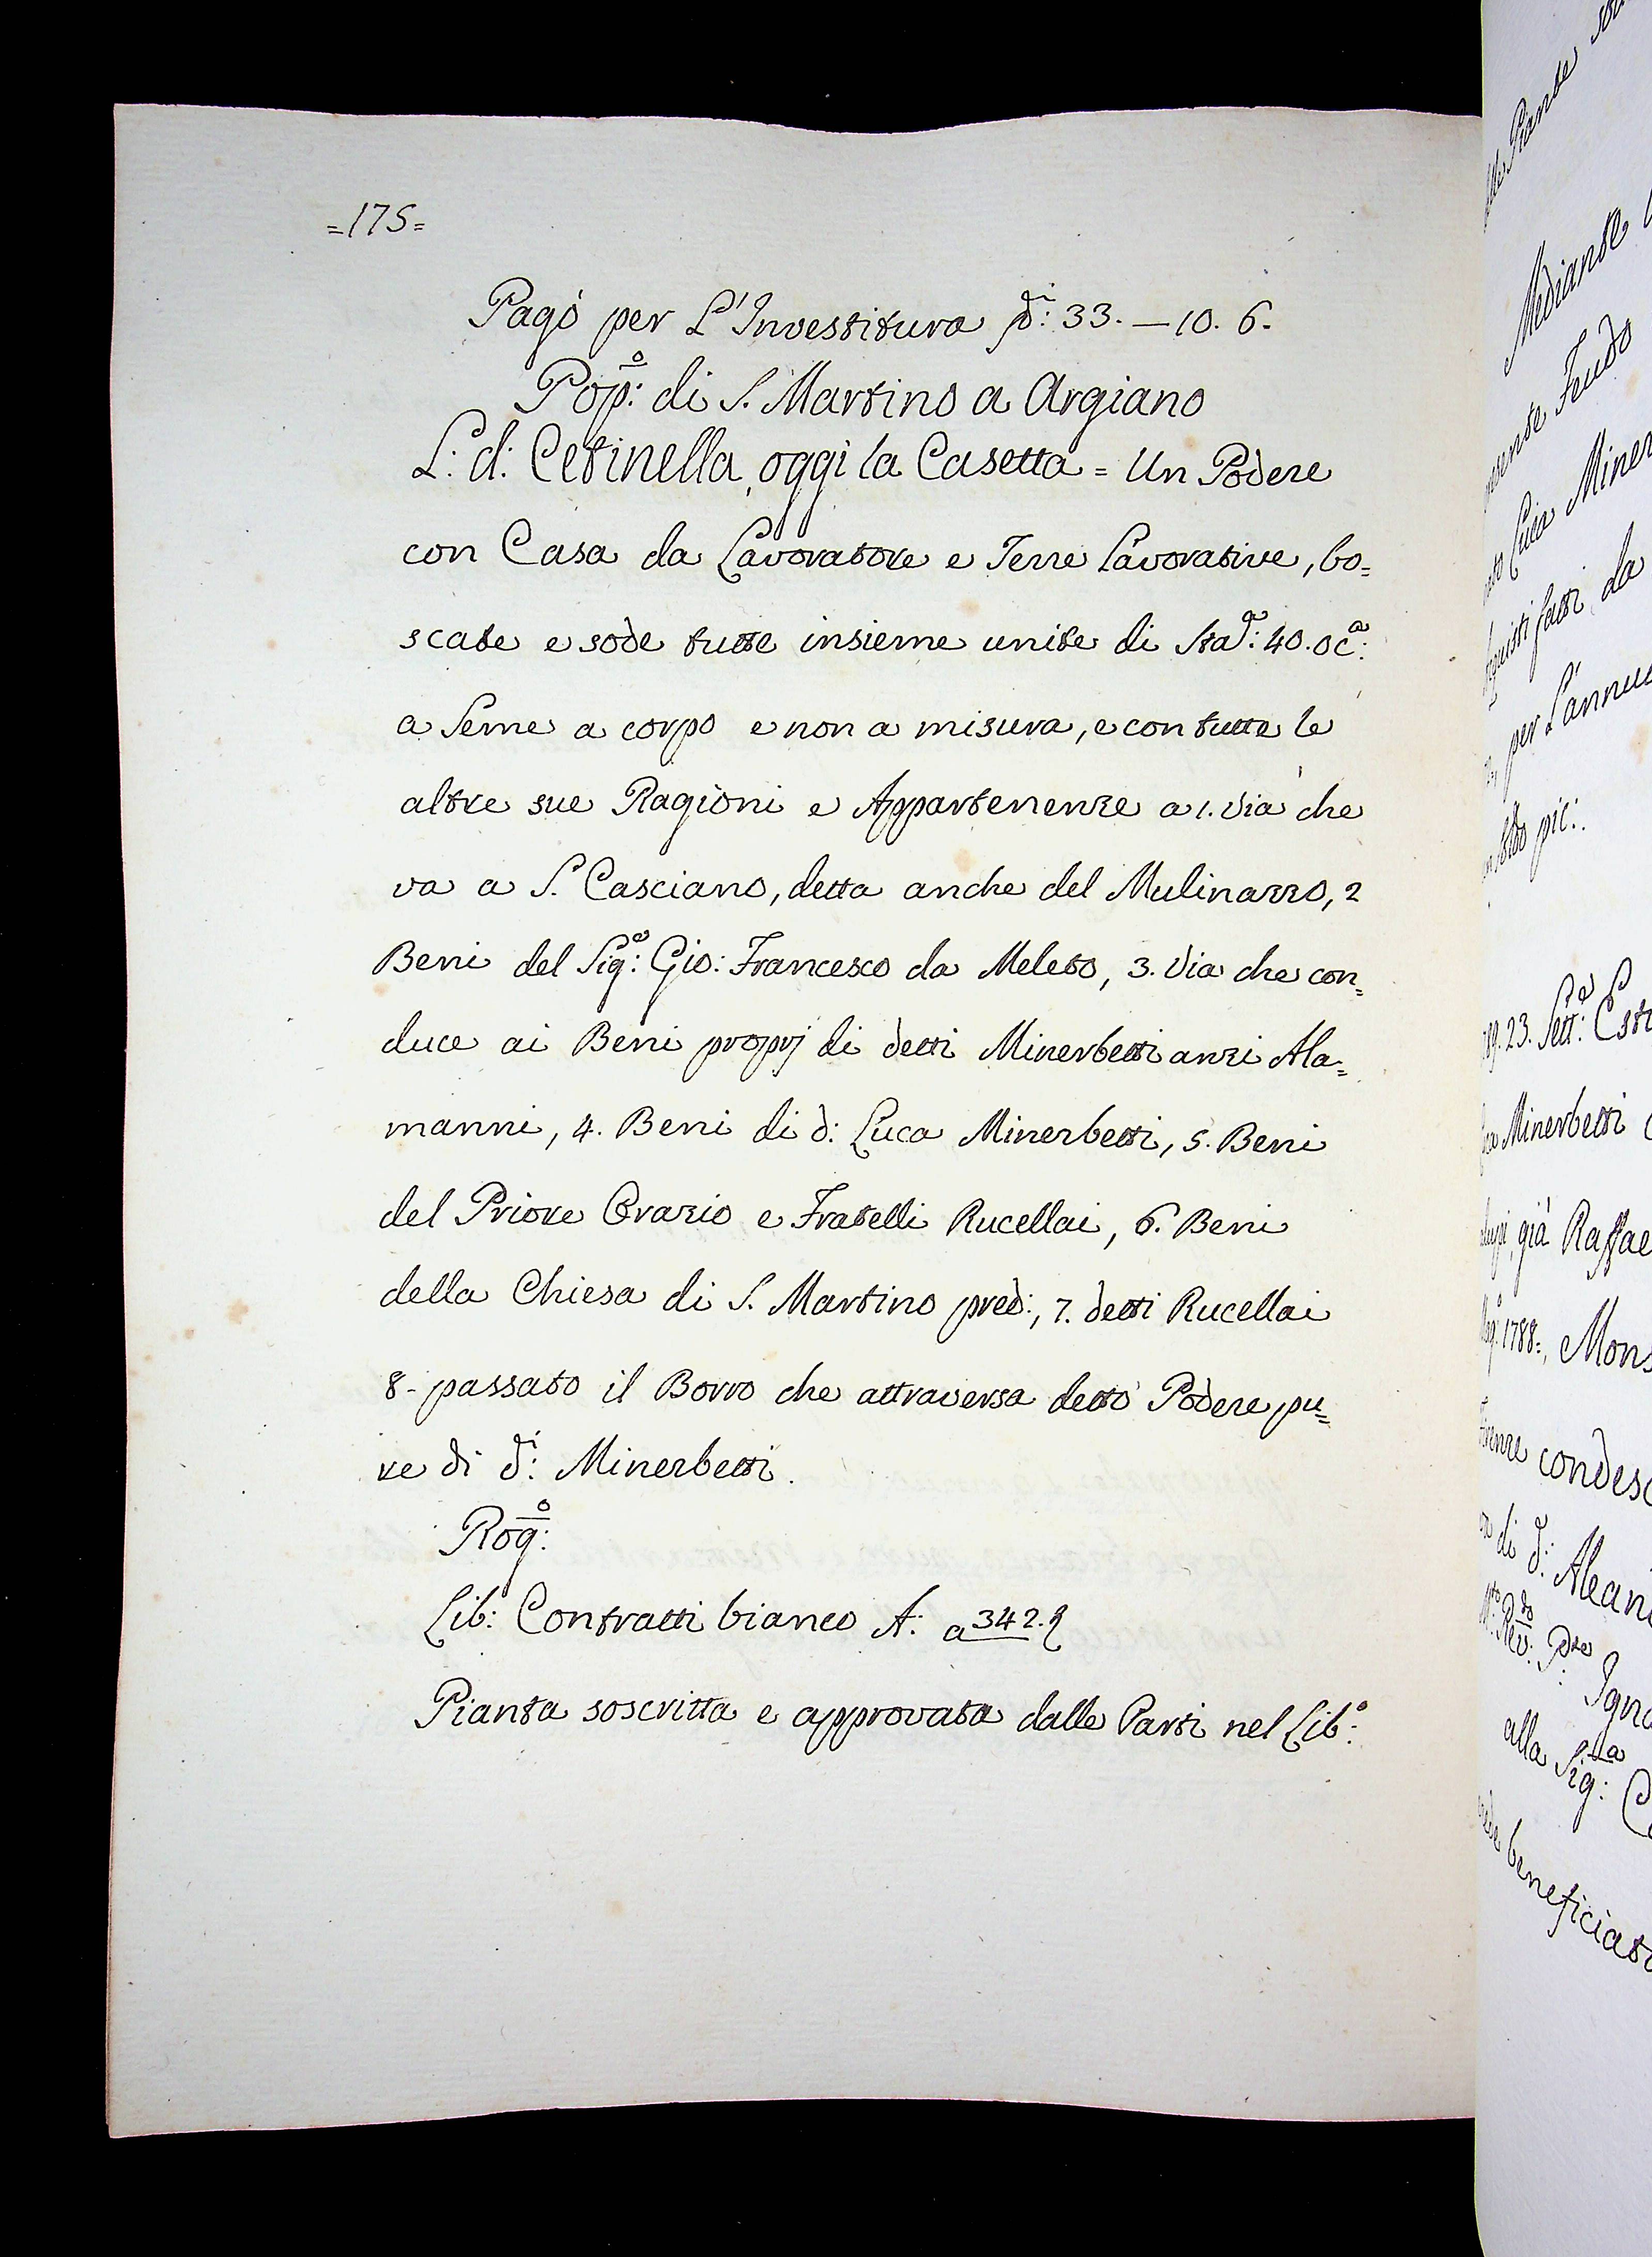 =175=
Pagò per L'Investitura 33.—10. 6.
Pop:º di S. Martino a Argiano
L: d: Cetinella, oggi la Casetta = Un Podere
con Casa da Lavoratore e Terre Lavorative, bo=
scate e sode tutte insieme unite di Sta:ª 40. oc:ª
a Seme a corpo e non a misura, e con tutte le
altre sue Ragioni e Appartenenze a 1. Via che
va a S. Casciano, detta anche del Mulinazzo, 2
Beni del Sig:e Gio: Francesco da Meleto, 3. Via che con=
duce ai Beni proprj di detti Minerbetti anzi Ala=
manni, 4. Beni di d: Luca Minerbetti, 5. Beni
del Priore Orazio e Fratelli Rucellai, 6. Beni
della Chiesa di S. Martino pred:, 7. detti Rucellai
8- passato il Borro che attraversa detto Podere pu=
re di d:i Minerbetti.
Rog:º
Lib: Contratti bianco A: a 342.
Pianta soscritta e approvata dalle Parti nel Lib:º
elle Piante
Mediante
Feudo
Luca Miner
fatti da
per L'annuo
Soldo pic:
23. Sett:e
Minerbetti
già Raffae
1788=, Mons
condesc
di d:
Rev:do P:re Igna
alla Sig:ra
beneficiato